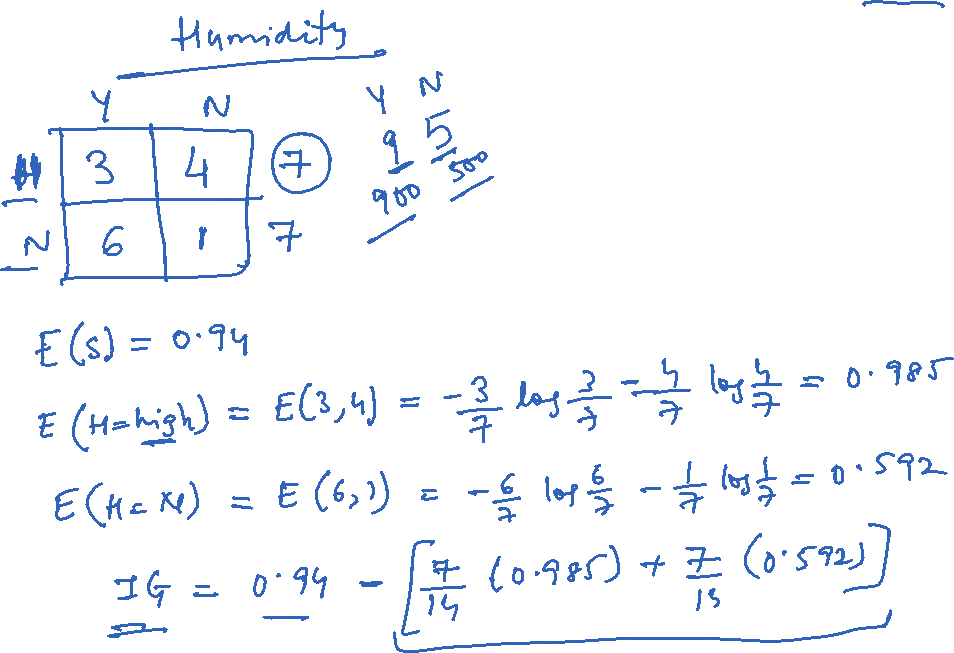 Humidity
Y N
Y N
H 3 4 7
9 5
900 500
N 6 1 7
E(S) = 0.94
E(H=high) = E(3,4) = -3/7 log 3/7 - 4/7 log 4/7 = 0.985
E(H=N) = E(6,1) = -6/7 log 6/7 - 1/7 log 1/7 = 0.592
IG = 0.94 - [7/14 (0.985) + 7/15 (0.592)]